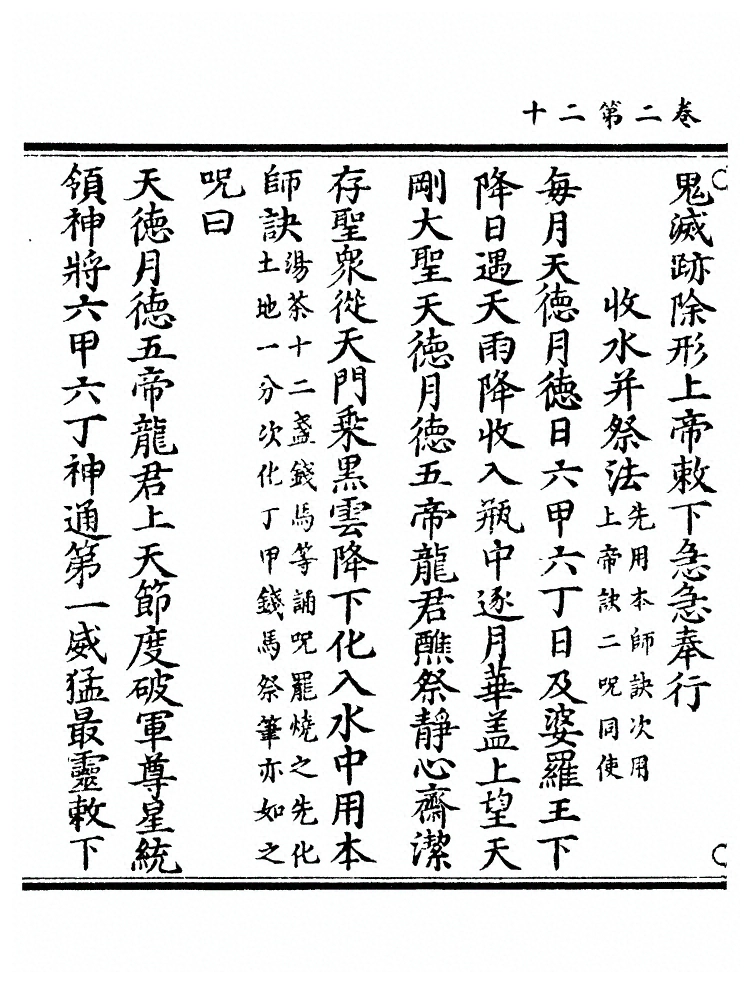 卷二第二十
鬼滅跡除形上帝敕下急急奉行
收水并祭法先用本師訣次用
上帝訣二呪同使
每月天徳月徳日六甲六丁日及婆羅王下
降日遇天雨降收入瓶中逐月華盖上望天
剛大聖天徳月徳五帝龍君醮祭靜心齋潔
存聖衆從天門乘黒雲降下化入水中用本
師訣湯茶十二盞錢馬等誦呪罷燒之先化
土地一分次化丁甲錢馬祭筆亦如之
呪曰
天徳月徳五帝龍君上天節度破軍尊星統
領神將六甲六丁神通第一威猛最靈敕下